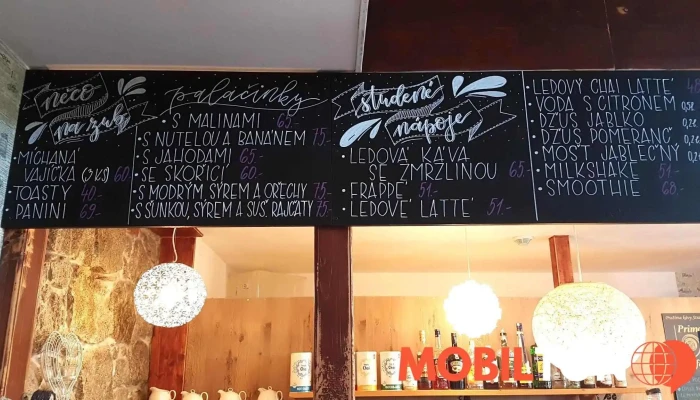 něco
na zub
• MÍCHANÁ
VAJÍČKA (3 KS) 60.-
• TOASTY 40.-
• PANINI 69.-
palačinky
• S MALINAMI 65.-
• S NUTELOU A BANÁNEM 75.-
• S JAHODAMI 65.-
• SE SKOŘICÍ 60.-
• S MODRÝM SÝREM A OŘECHY 75.-
• S ŠUNKOU, SÝREM A SUŠ. RAJČATY 75.-
studené
nápoje
• LEDOVÁ KÁVA
SE ZMRZLINOU 65.-
• FRAPPÉ 51.-
• LEDOVÉ LATTÉ 51.-
• LEDOVÝ CHAI LATTÉ 48
• VODA S CITRONEM 0,5ℓ
• DŽUS JABLKO 0,2ℓ
• DŽUS POMERANČ 0,2ℓ
• MOŠT JABLEČNÝ 0,2
• MILKSHAKE 51.-
• SMOOTHIE 68.-
MOBIL